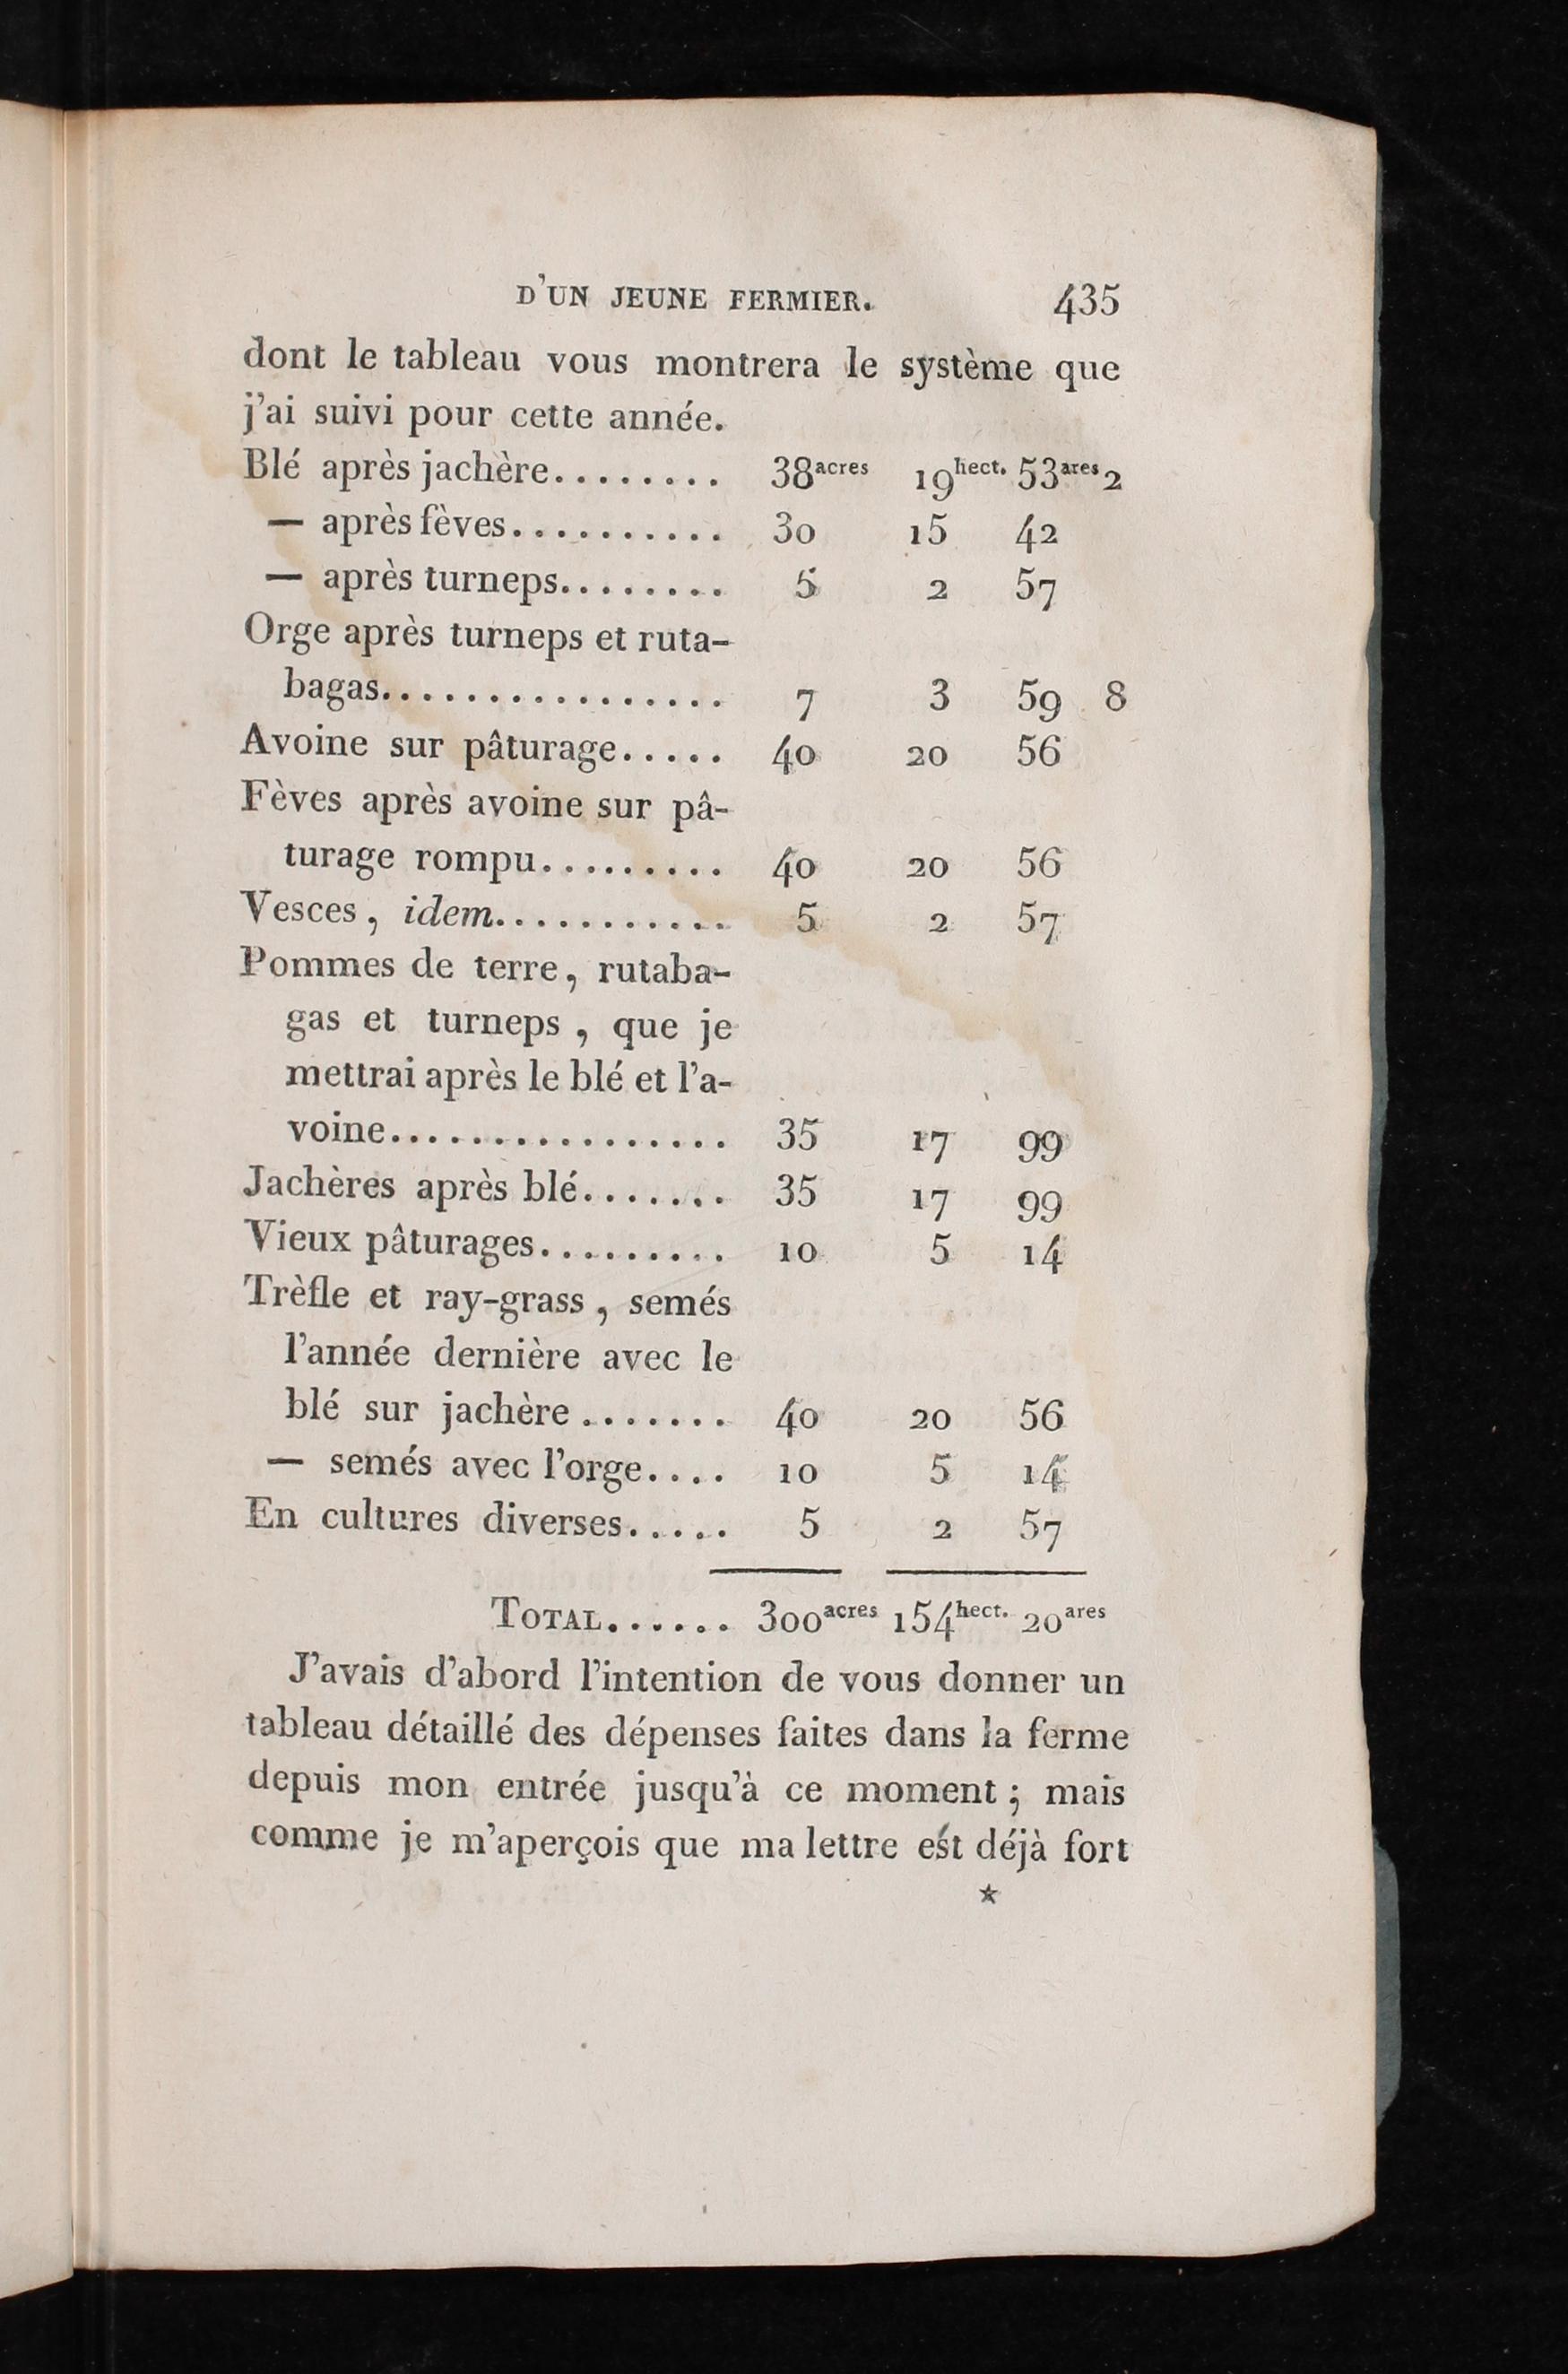 D'UN JEUNE FERMIER. 435
dont le tableau vous montrera le système que
j'ai suivi pour cette année.
Blé après jachère........ 38acres 19hect. 53ares 2
— après fèves.......... 30 15 42
— après turneps........ 5 2 57
Orge après turneps et ruta-
bagas................ 7 3 59 8
Avoine sur pâturage..... 40 20 56
Fèves après avoine sur pâ-
turage rompu......... 40 20 56
Vesces, idem........... 5 2 57
Pommes de terre, rutaba-
gas et turneps, que je
mettrai après le blé et l'a-
voine................ 35 17 99
Jachères après blé....... 35 17 99
Vieux pâturages......... 10 5 14
Trèfle et ray-grass, semés
l'année dernière avec le
blé sur jachère....... 40 20 56
— semés avec l'orge.... 10 5 14
En cultures diverses..... 5 2 57
TOTAL...... 300acres 154hect. 20ares
J'avais d'abord l'intention de vous donner un
tableau détaillé des dépenses faites dans la ferme
depuis mon entrée jusqu'à ce moment; mais
comme je m'aperçois que ma lettre est déjà fort
*